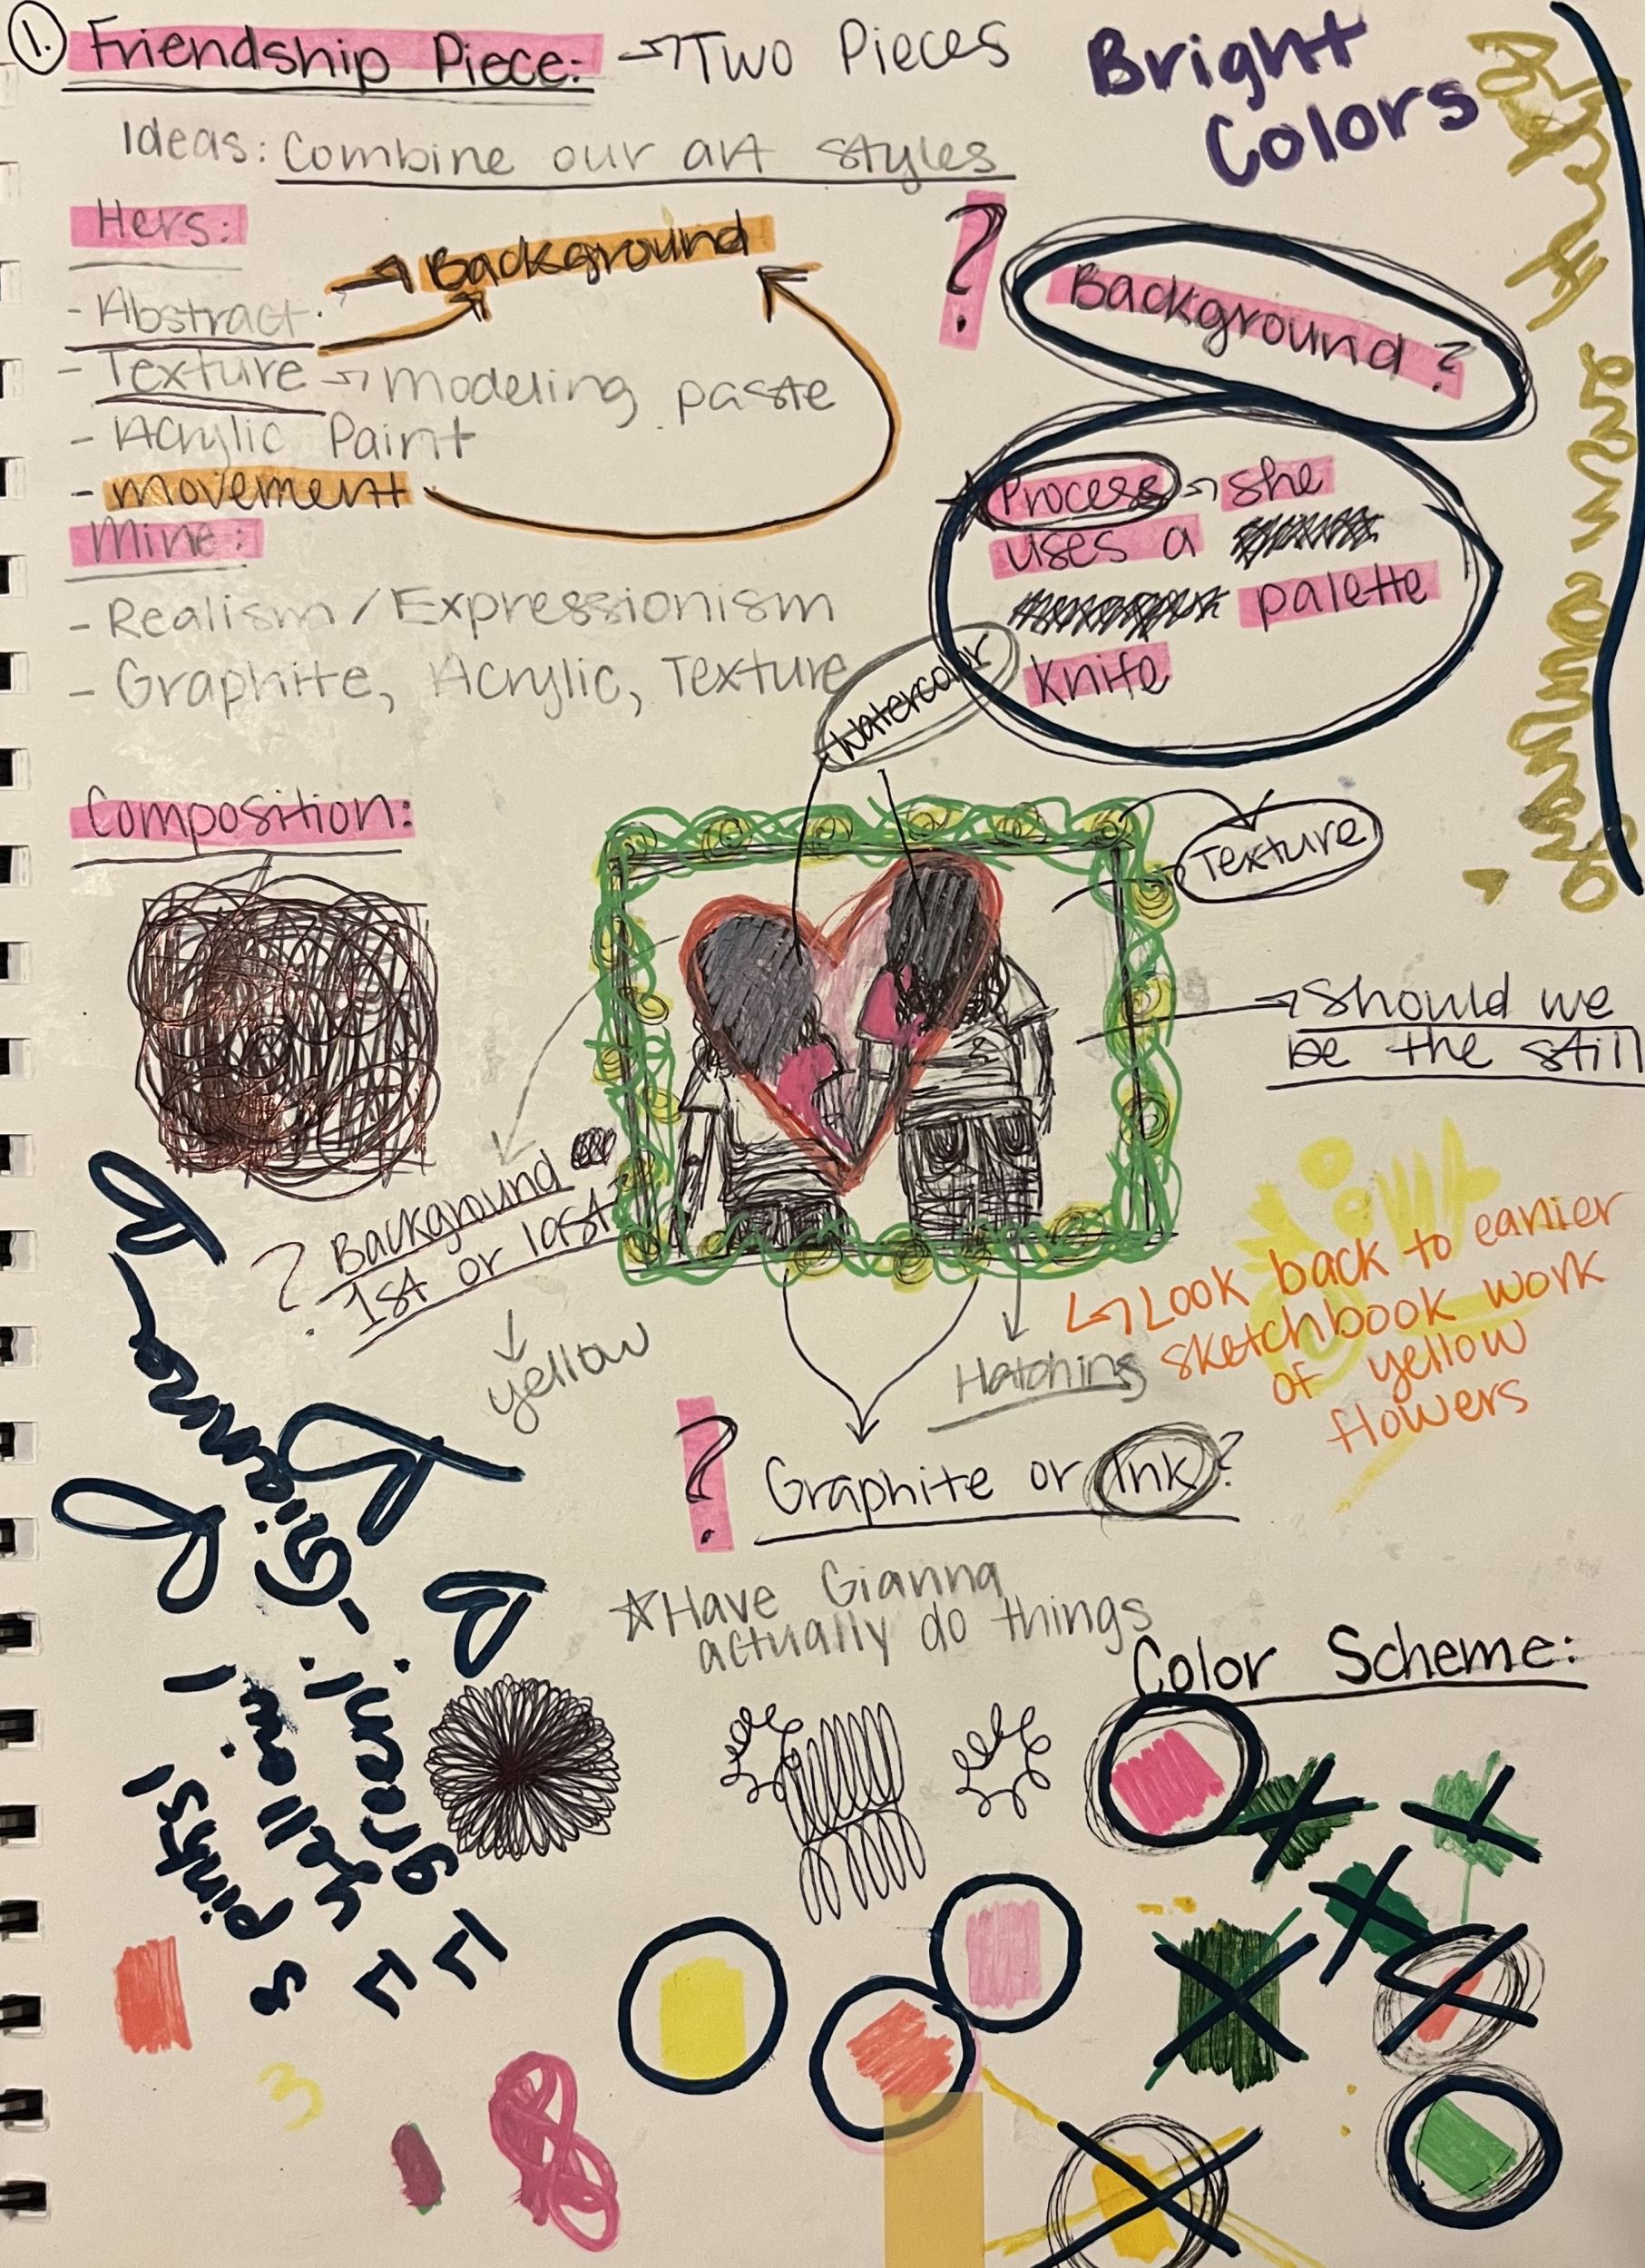 1. Friendship Piece: → Two Pieces
Bright
Colors
Ideas: Combine our art styles
Hers:
→ Background
- Abstract
- Texture → modeling paste
- Acrylic Paint
- movement
Mine:
- Realism/Expressionism
- Graphite, Acrylic, Texture
?
Background?
Process → she
uses a
palette
Knife
Watercolor
Composition:
Texture
→ Should we
be the still
? Background
1st or last
↓
yellow
Hatching
→ Look back to earlier
sketchbook work
of yellow
flowers
? Graphite or Ink?
☆ Have Gianna
actually do things
Color Scheme:
- Gianna
3